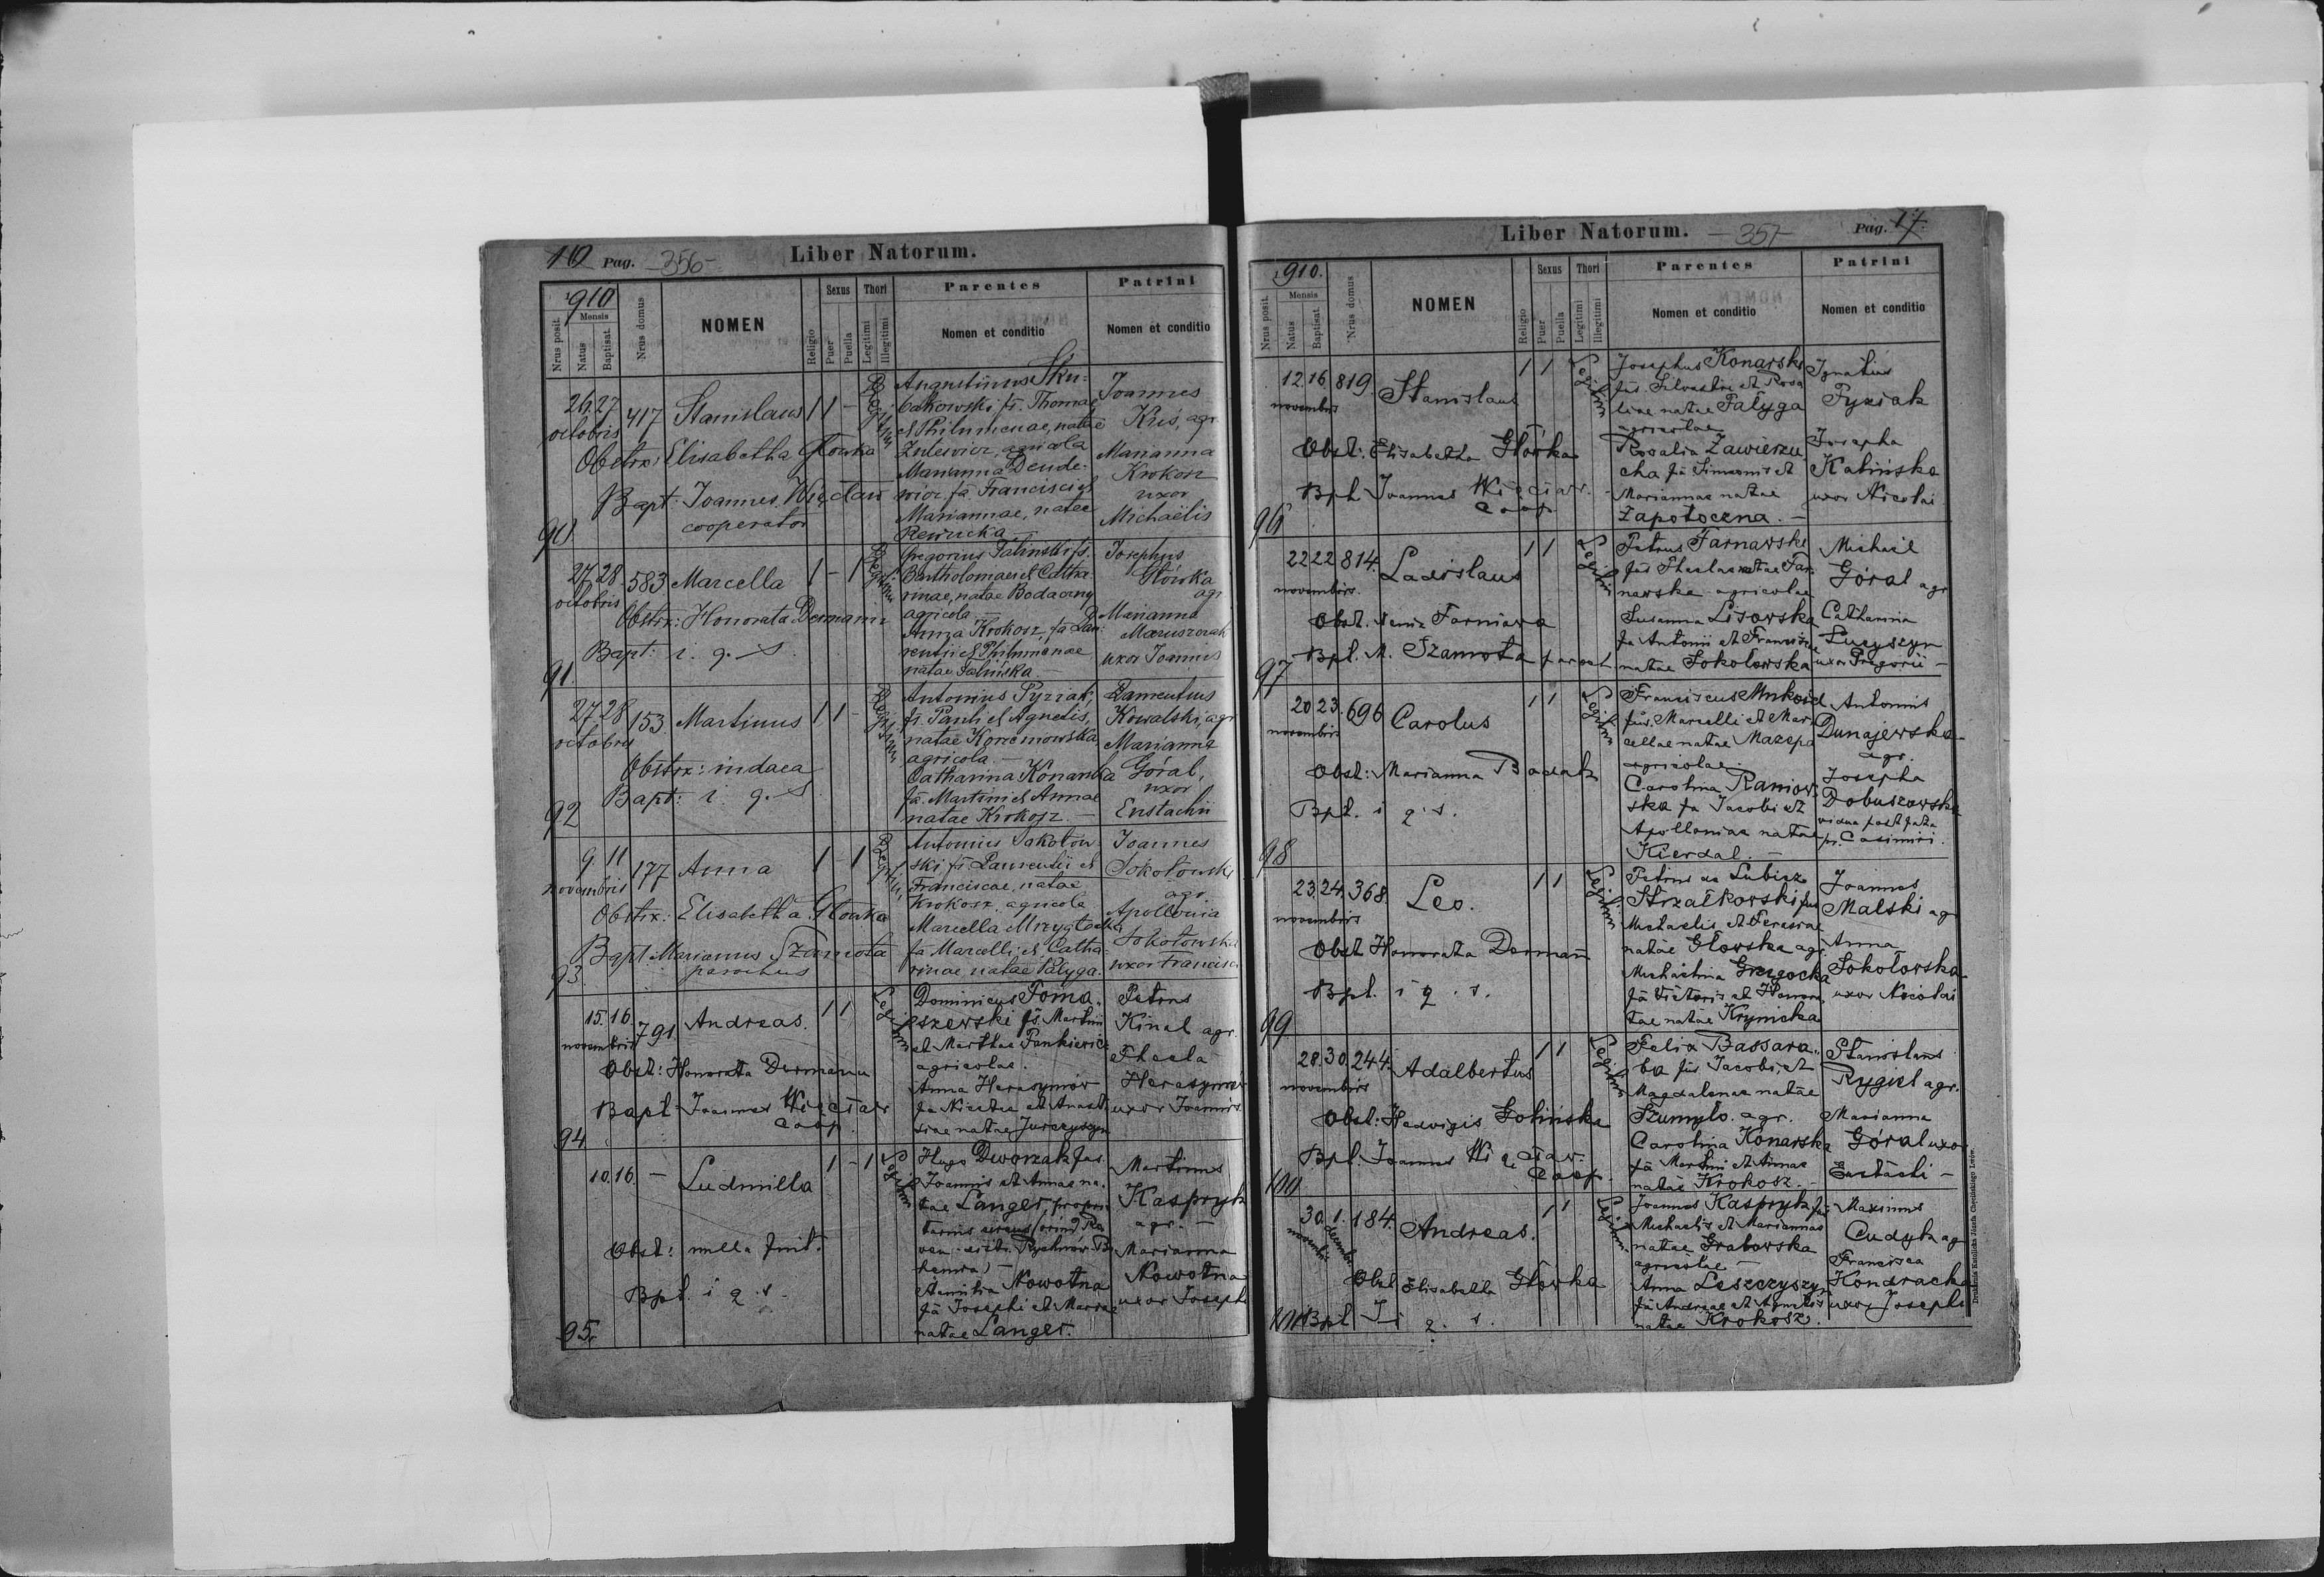 10 Pag. -356- Liber Natorum.
1910
Nrus posit.
Mensis
Natus
Baptisat.
Nrus domus
NOMEN
Religio
Sexus
Puer
Puella
Thori
Legitimi
Illegitimi
Parentes
Nomen et conditio
Patrini
Nomen et conditio
26. 27 octobris 417 Stanislaus 1 1 - Legitim
Obstrx: Elisabetha Głowka
Bapt: Joannes Więcław
cooperator
90
Augustinus Sku-
bakowski fs. Thomae
et Philumenae, natae
agricola
Marianna Dende-
wicz fa Francisci et
Mariannae, natae
Rewucka
Joannes
Kuś, agr.
Marianna
Krokosz
uxor
Michaëlis
27. 28 octobris 583 Marcella 1 - 1 Legitim
Obstrx: Honorata Dermann
Bapt: i. q. S.
91.
Gregorius Saliński fs.
Bartholomaei et Catha-
rinae, natae Bodaczny
agricola —
Anna Krokosz, fa Lau-
rentii et Philumenae
natae Salińska —
Josephus
Głowka
agr
Marianna
uxor Joannis
27. 28 octobris 153 Martinus 1 1 - Legitim
Obstrx: iudaea
Bapt: i. q. S
92
Antonius Pyziak,
fs. Pauli et Agnetis,
natae Korzeniowska
agricola. —
Catharina Konarska
fa Martini et Annae
natae Krokosz. —
Kowalski, agr
Marianna
Góral,
uxor
Eustachii
9 11 novembris 177 Anna 1 - 1 Legitim
Obstrx: Elisabetha Głowka
Bapt: Marianus Szamota
parochus
93.
Antonius Sokołow-
ski fs. Laurentii et
Franciscae, natae
Krokosz, agricola
Marcella Mrzygłocka
fa Marcelli et Catha-
rinae, natae Pałyga.
Joannes
Sokołowski
agr.
Apollonia
Sokołowska
uxor Francisci
15. 16. novembris 791. Andreas. 1 1 Legitim
Obst: Honorata Dermann
Bapt: Joannes Więcław
Coop.
94
Dominicus Toma-
szewski fs. Martini
et Marthae Pankiewicz
agricolae.
Anna Herasymów
fa Nicetae et Anast-
siae natae Jurczyszyn
Petrus
Kinal agr.
Thecla
Herasymów
uxor Joannis
10. 16. — Ludmilla 1 - 1 Legitim
Obst: nulla fuit.
Bpt. i q. s.
95.
Hugo Dworzak fus.
Joannis et Annae na-
tae Langer, proprie-
tarius circus
Nowotna
fa Josephi et Mariae
natae Langer.
Martinus
Kaspryk
agr. —
Marianna
Nowotna
uxor Josephi
Liber Natorum. -357- Pag. 17.
1910.
Nrus posit.
Mensis
Natus
Baptisat.
Nrus domus
NOMEN
Religio
Sexus
Puer
Puella
Thori
Legitimi
Illegitimi
Parentes
Nomen et conditio
Patrini
Nomen et conditio
12. 16. novembris 819. Stanislaus 1 1 Legitim
Obst: Elisabetha Głowka
Bpt. Joannes Więcław.
Coop.
96
Josephus Konarski
fus. Silvestri et Rosa-
liae natae Pałyga
agricolae
Rosalia Zawieru-
cha fa Simeonis et
Mariannae natae
Zapotoczna. —
Ignatius
Pyziak
Josepha
Kalińska
uxor Nicolai
22 22 novembris. 814. Ladislaus 1 1 Legitim
Obst.
Bpt. M. Szamota paroch
97
Petrus Tarnawski
fus Theclae natae Tar-
nawska agricolae
Susanna Lisowska
fa Antonii et Franciscae
natae Sokołowska
Michael
Góral agr
Catharina
Łuzyszyn
uxor Gregorii —
20 23. novembris 696 Carolus 1 1 Legitim
Obst: Marianna
Bpt. i q. s.
98
Franciscus
fus. Marcelli et Mar-
cellae natae Mazepa
agricolae.
Carolina Raniow-
ska fa Jacobi et
Apolloniae natae
Kierdal. —
Antonius
Dunajewski
agr.
Josepha
Dobuszowska
vidua post fata
pr. Casimiri.
23. 24. novembris 368. Leo. 1 1 Legitim
Obst Honorata Dermann
Bpt. i q. s.
99
Petrus de Lubicz
Strzałkowski fus
Michaelis et Teresiae
natae Głowska agr.
Michalina Grzegocka
fa Victoris et Honora-
tae natae Krynicka
Joannes
Malski agr
Anna
Sokołowska
uxor Nicolai
28. 30. novembris 244. Adalbertus 1 1 Legitim
Obst: Hedvigis Golińska
Bpt. Joannes Więcław.
Coop.
100
Felix Bassara-
ba fus Jacobi et
Magdalenae natae
Szumyło. agr.
Carolina Konarska
fa Martini et Annae
natae Krokosz. —
Stanislaus
Rygiel agr.
Marianna
Góral uxor
Eustachi —
30. novembris 1. decembris 184. Andreas. 1 1 Legitim
Obst. Elisabetha Głowka
101 Bpt. i q. s.
Joannes Kaspryk fus
Michaelis et Mariannae
natae Grabowska
agricolae —
Anna Leszczyszyn
fa Andreae et Agnetis
natae Krokosz.
Maximus
Cudyk agr
Francisca
Kondracka
uxor Josephi
Drukarnia Katolicka Józefa Chęcińskiego Lwów.